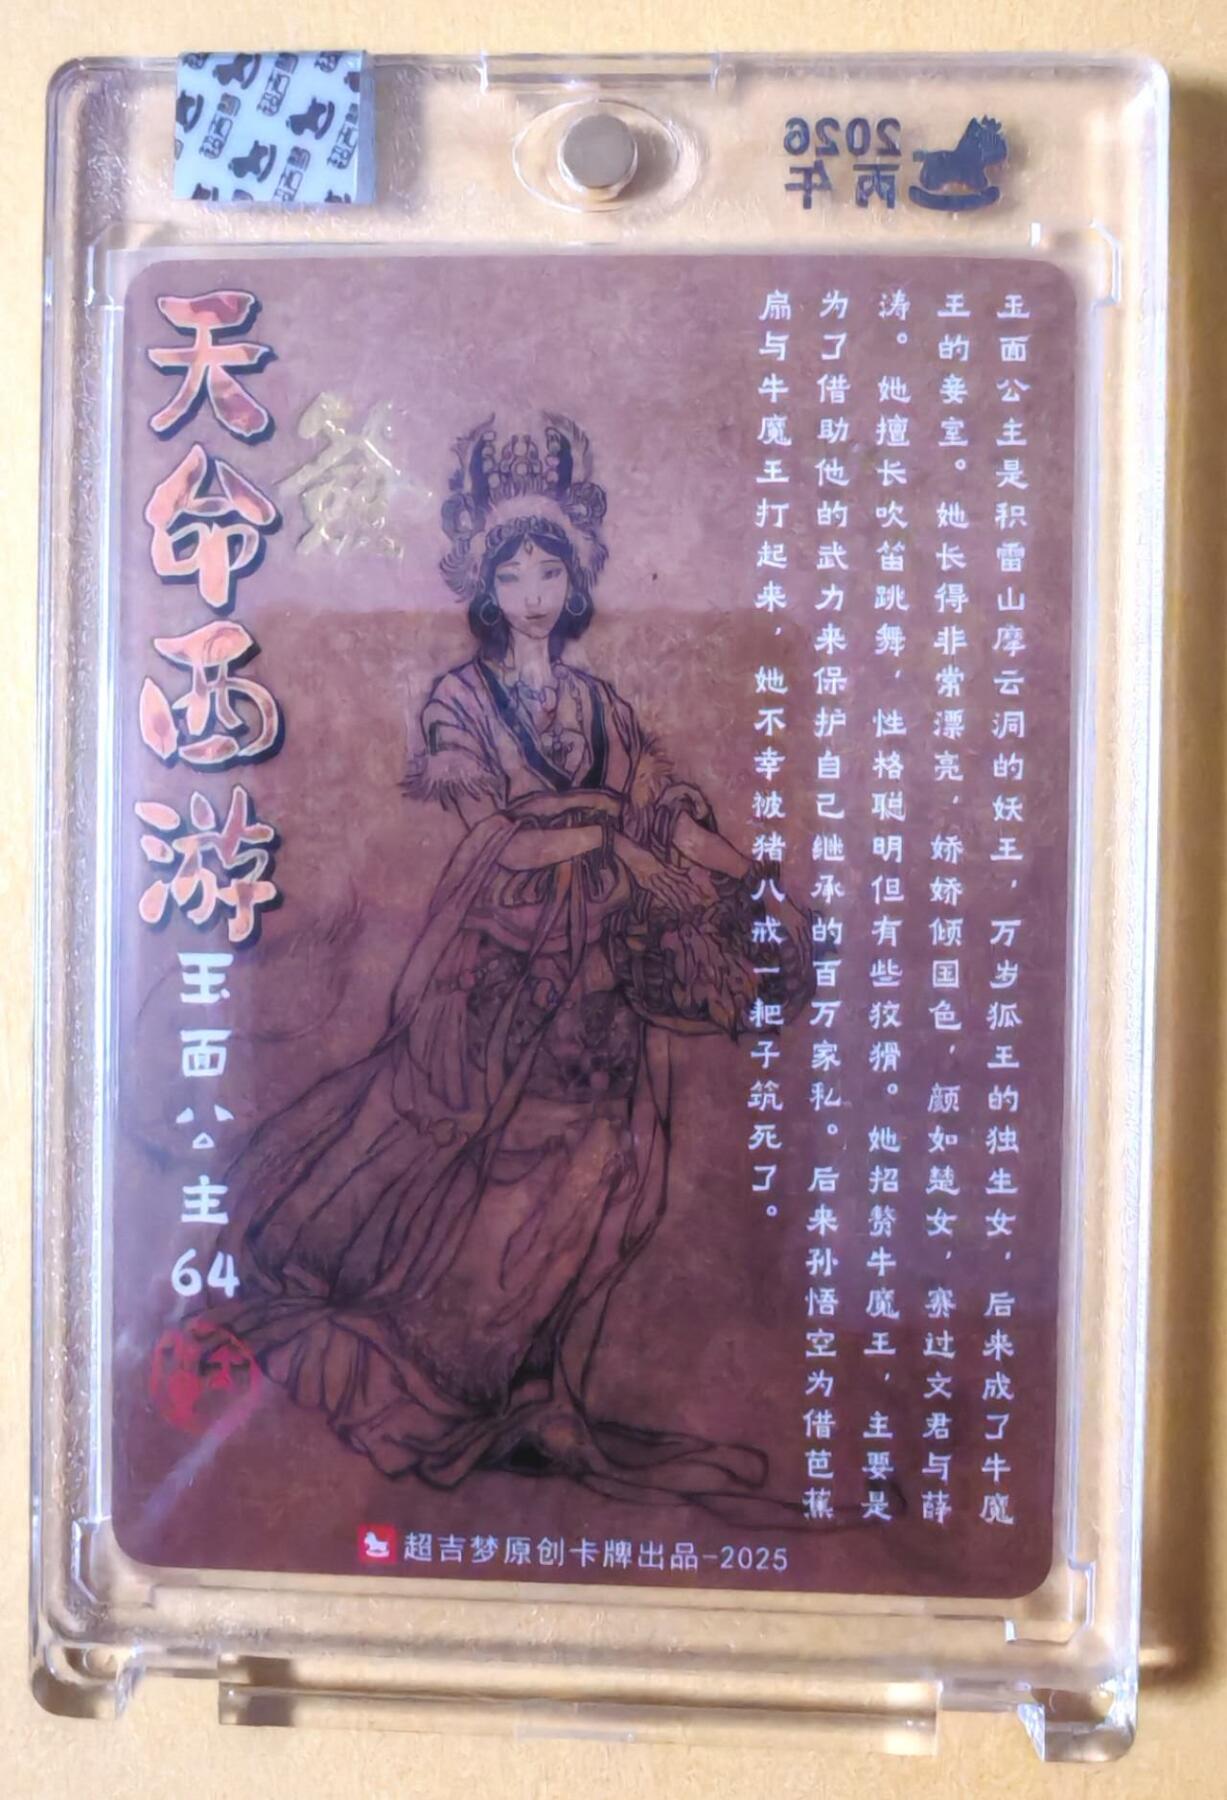 2026
丙午
天命西游
玉面公主
64
签
玉面公主是积雷山摩云洞的妖王，万岁狐王的独生女，后来成了牛魔
王的妾室。她长得非常漂亮，娇娇倾国色，颜如楚女，赛过文君与薛
涛。她擅长吹笛跳舞，性格聪明但有些狡猾。她招赘牛魔王，主要是
为了借助他的武力来保护自己继承的百万家私。后来孙悟空为借芭蕉
扇与牛魔王打起来，她不幸被猪八戒一耙子筑死了。
超吉梦原创卡牌出品-2025